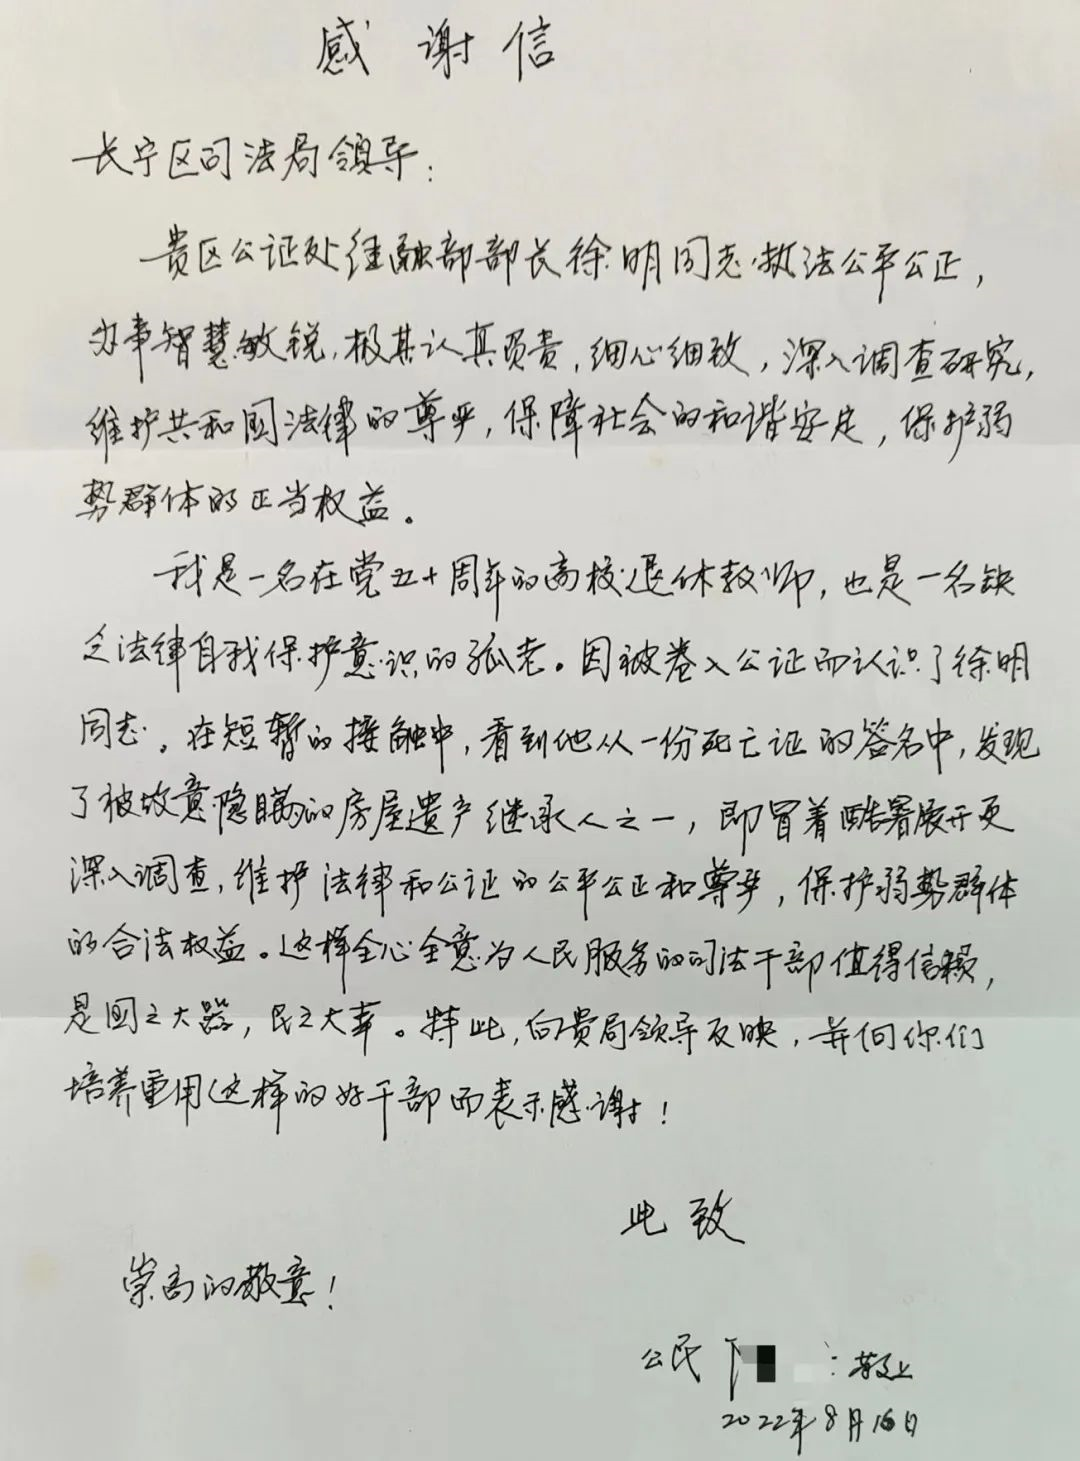 感谢信
长宁区司法局领导：
贵区公证处金融部部长徐明同志执法公平公正，
办事智慧敏锐，极其认真负责，细心细致，深入调查研究，
维护共和国法律的尊严，保障社会的和谐安定，保护弱
势群体的正当权益。
我是一名在党五十周年的高校退休教师，也是一名缺
乏法律自我保护意识的孤老。因被卷入公证而认识了徐明
同志。在短暂的接触中，看到他从一份死亡证的签名中，发现
了被故意隐瞒的房屋遗产继承人之一，即冒着酷暑展开更
深入调查，维护法律和公证的公平公正和尊严，保护弱势群体
的合法权益。这样全心全意为人民服务的司法干部值得信赖，
是国之大器，民之大幸。特此，向贵局领导反映，并向你们
培养重用这样的好干部而表示感谢！
此致
崇高的敬意！
公民 敬上
2022年8月16日